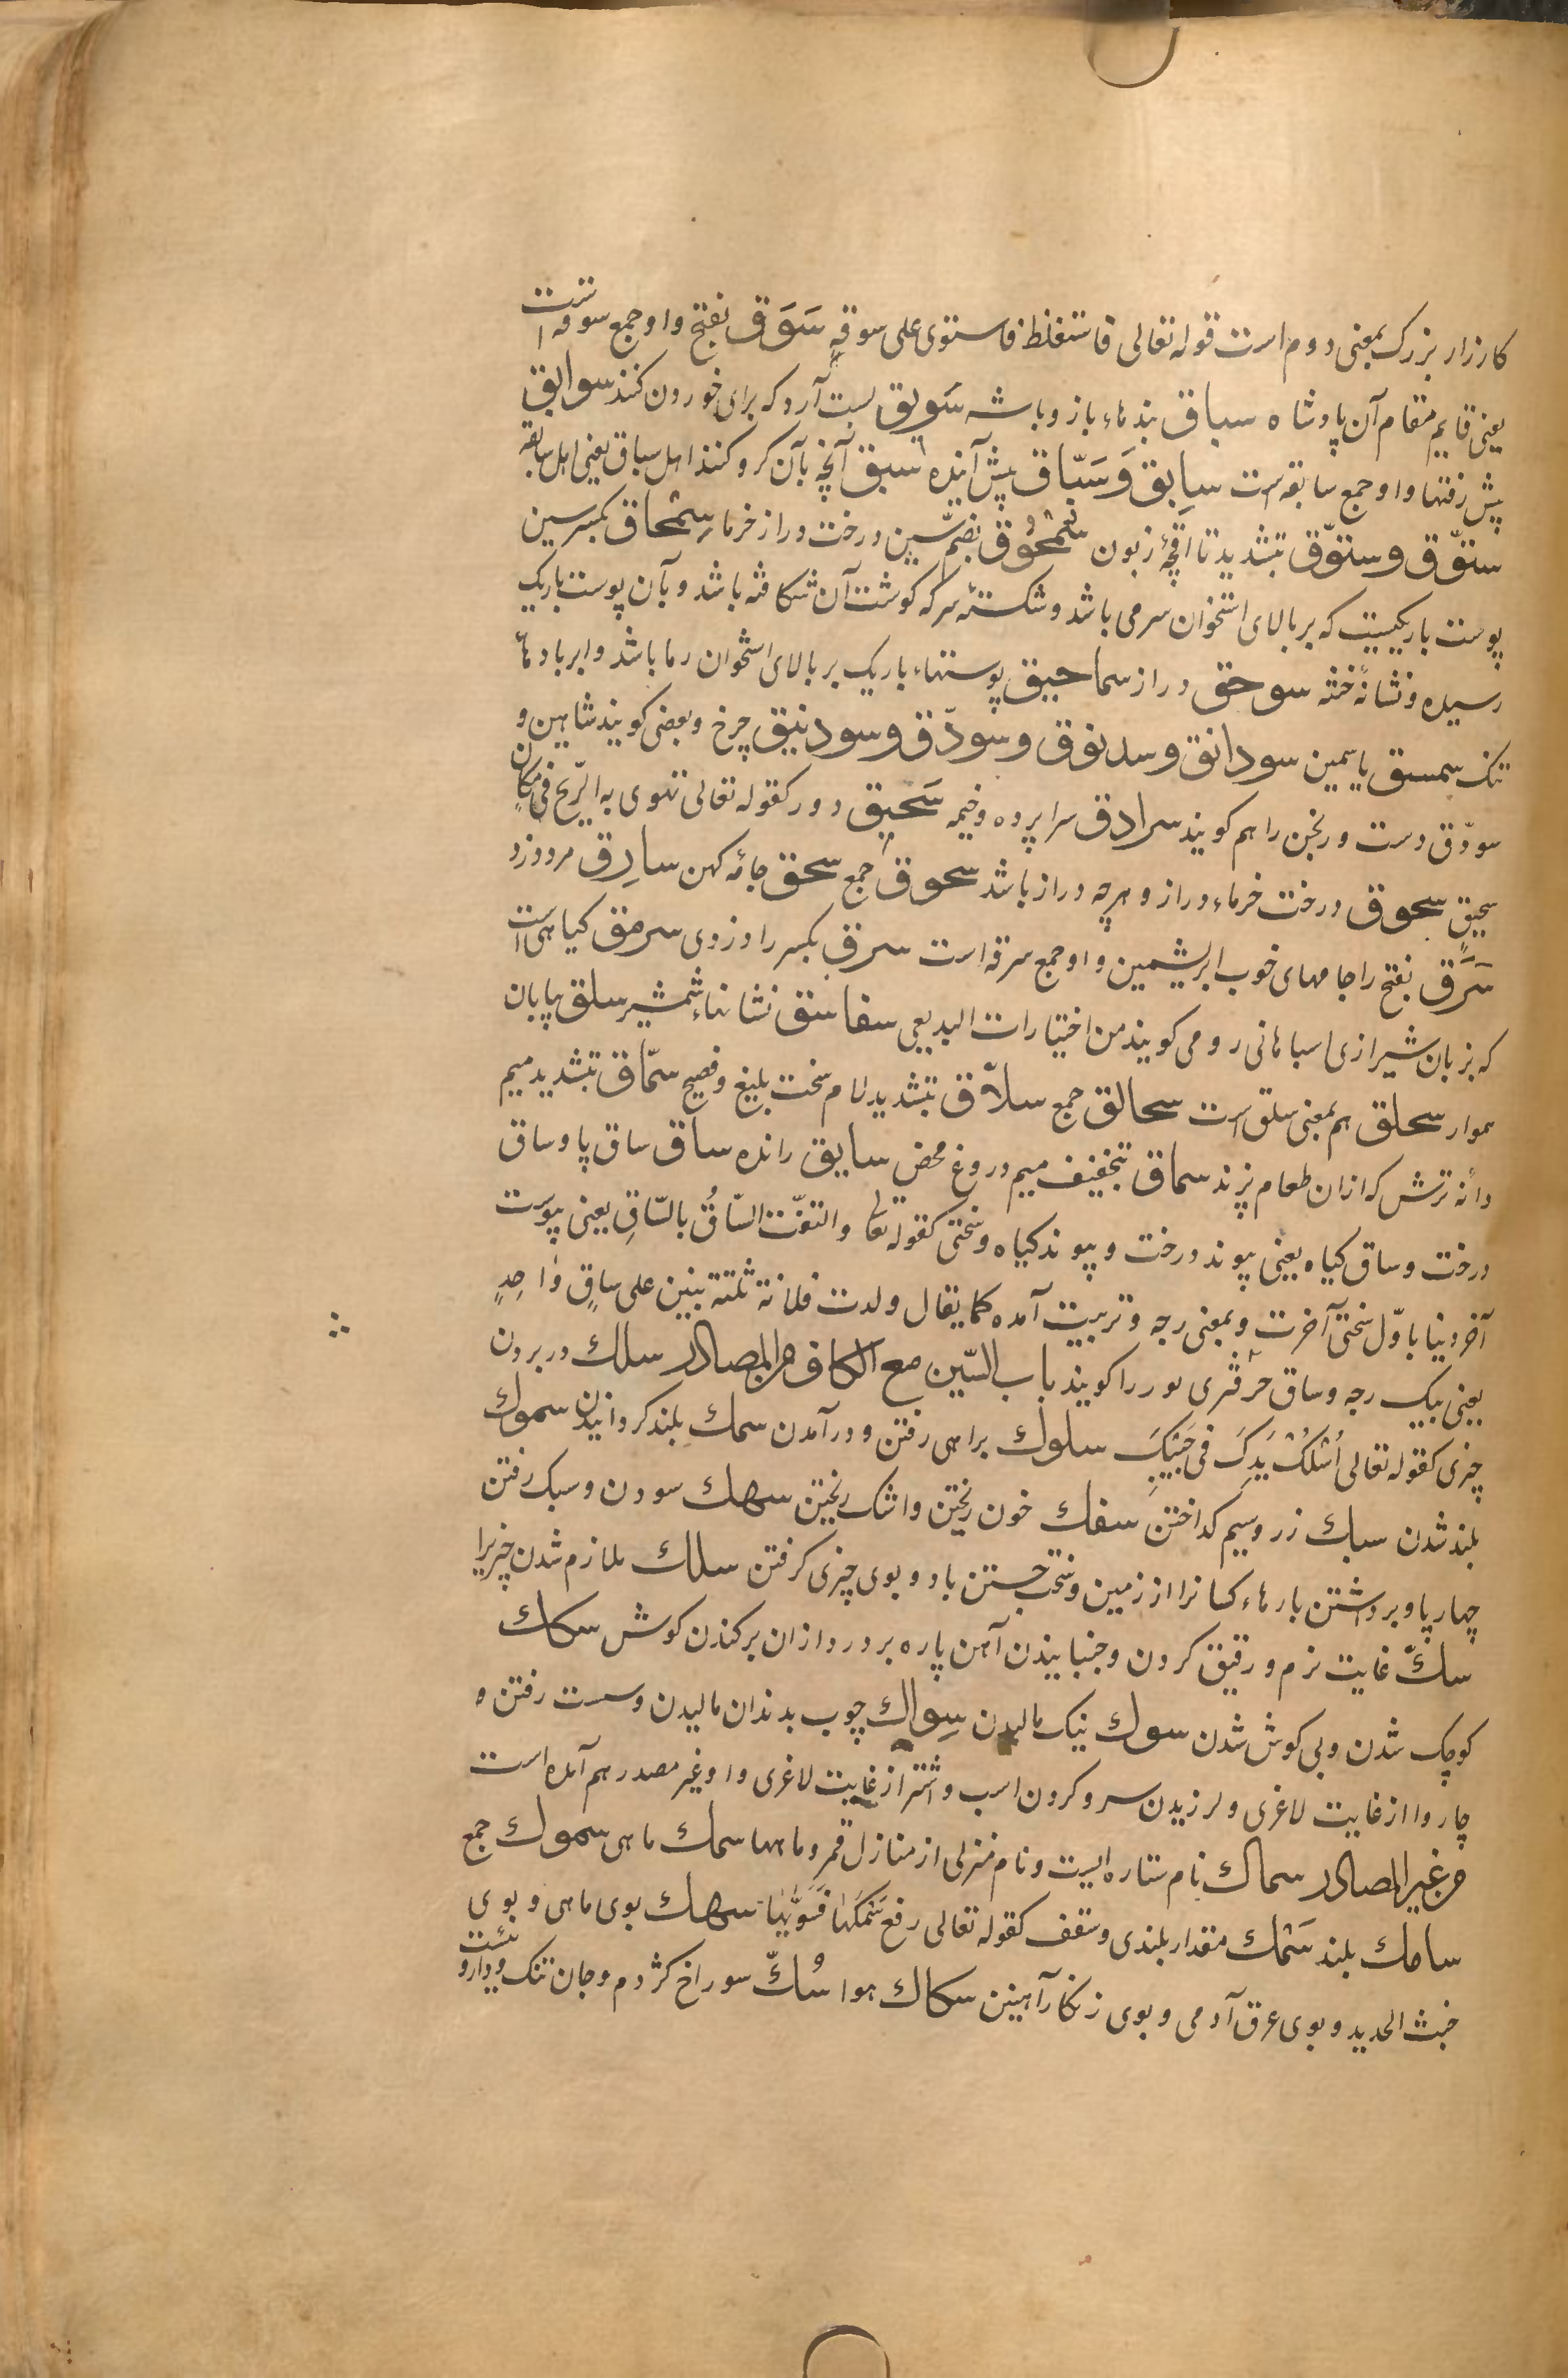 کارزار بزرک بمعنی دوم است قوله تعالی فاستغلظ فاستوی علی سوقهٖ سَوَق بفتح واو جمع سوقه است
یعنی قایم مقام آن پادشاه سباق بندهاء باز و باشه سَویق پست آرد که برای خوردن کنند سوابق
پیش رفتها و او جمع سابقه است سابِق وَ سَبّاق پیش آینده سبق آنچه بآن کرو کنند اهل سباق یعنی اهل سابقه
ستّوق و ستوّق بتشدید تا اقچۀ زبون سُمحُوق بضمّ سین درخت دراز خرما سِمحاق بکسر سین
پوست باریکیست که بر بالای استخوان سر می باشد و شکستۀ سر که کوشت آن شکافته باشد و بآن پوست باریک
رسیده و نشانۀ ختنه سوحق دراز سماحیق پوستهاء باریک بر بالای استخوان رما باشد و ابر پادهاء
تنک سمسق یاسمین سودانق و سدنوق و سوذّق و سودنیق چرخ و بعضی کویند شاهین و
سوذّق دست ورنجن را هم کویند سرادق سراپرده و خیمه سَحیق دور کقوله تعالی تهوی به الرّیح فی مکانٍ
سحیقٍ سحوق درخت خرماء دراز و هرچه دراز باشد سحوق جمع سحق جامۀ کهن سارِق مرد دزد
سَرَق بفتح را جامهای خوب ابریشمین و او جمع سرقه است سرق بکسر را دزدی سرمق کیاهی است
که بزبان شیرازی اسباهانی رو می کویند من اختیارات البدیعی سفاسق نشانهاء شمشیر سلق بیابان
هموار سحلق هم بمعنی سلق است سحالق جمع سلاّق بتشدید لام سخت بلیغ و فصیح سمّاق بتشدید میم
دانۀ ترش که ازان طعام پزند سماق بتخفیف میم دروغ محض سایق راننده ساق ساق پا و ساق
درخت و ساق کیاه یعنی پیوند درخت و پیوند کیاه و سختی کقوله تعا والتفّت السّاقُ بالسّاقِ یعنی پیوست
آخر دنیا باوّل سختی آخرت و بمعنی رجه و تربیت آمده کما یقال ولدت فلانة ثلثة بنین علی ساقٍ واحِدٍ
یعنی بیک رجه و ساق حرّ قمری نور را کویند باب السّین مع الکاف من المصادر سلك در بردن
چیزی کقوله تعالی اُسْلُكْ یَدَكَ فی جَیْبِكَ سلوك براهی رفتن و درآمدن سمك بلند کردانیدن سموك
بلند شدن سبك زر و سیم کداختن سفك خون ریختن و اشک ریختن سهك سودن و سبک رفتن
چهارپا و برداشتن بارهاء کسانرا از زمین و سخت جستن باد و بوی چیزی کرفتن سلك ملازم شدن چیزیرا
سكّ غایت نرم و رقیق کردن و جنبانیدن آهن پاره بر در و ازان برکندن کوش سكك
کوچک شدن و بی کوش شدن سوك نیک مالیدن سِواك چوب بدندان مالیدن و سست رفتن ه
چاروا از غایت لاغری و لرزیدن سر و کردن اسب و اشتر از غایت لاغری و او غیر مصدر هم آمده است
من غیر المصادر سماك نام ستاره ایست و نام منزلی از منازل قمر و ماهها سمك ماهی سموك جمع
سامك بلند سَمْك مقدار بلندی و سقف کقوله تعالی رفع سَمْكَها فَسَوّیٰها سهك بوی ماهی و بوی
خبث الحدید و بوی عرق آدمی و بوی زنکار آهنین سكاك هوا سُكّ سوراخ کژدم و جان تنک و دارو